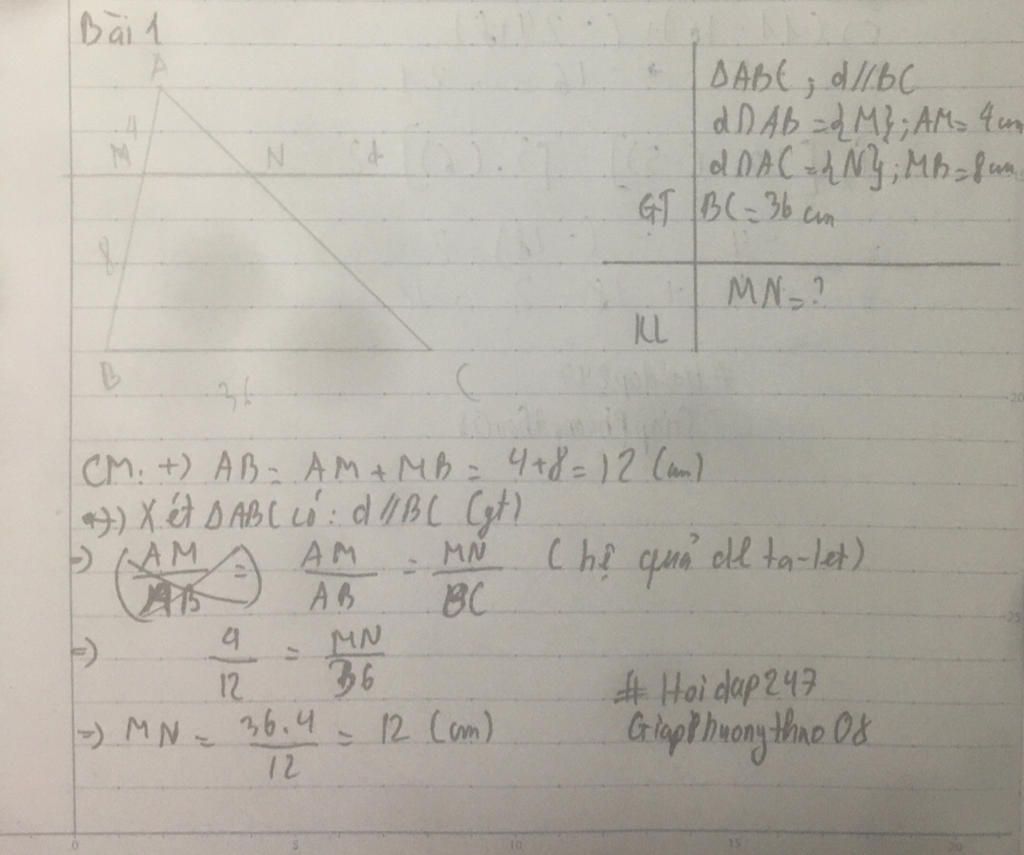 Bài 1
A
4
M N d
8
B C
36
GT
ΔABC ; d//BC
d∩AB = {M} ; AM = 4cm
d∩AC = {N} ; MB = 8cm
BC = 36 cm
KL
MN = ?
CM: +) AB = AM + MB = 4+8 = 12 (cm)
+) Xét ΔABC có: d//BC (gt)
=) AM/AB = AM/AB = MN/BC (hệ quả đl ta-let)
=) 4/12 = MN/36
=) MN = 36.4/12 = 12 (cm)
# Hoidap247
GiapPhuongthao08
0 5 10 15 20
20
25